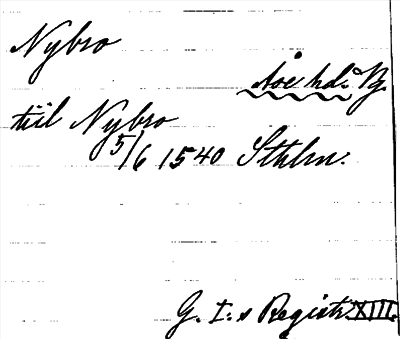 Nybro
Åse hd. Vg.
till Nybro
5/6 1540 Sthlm.
G. I:s Registr. XIII.